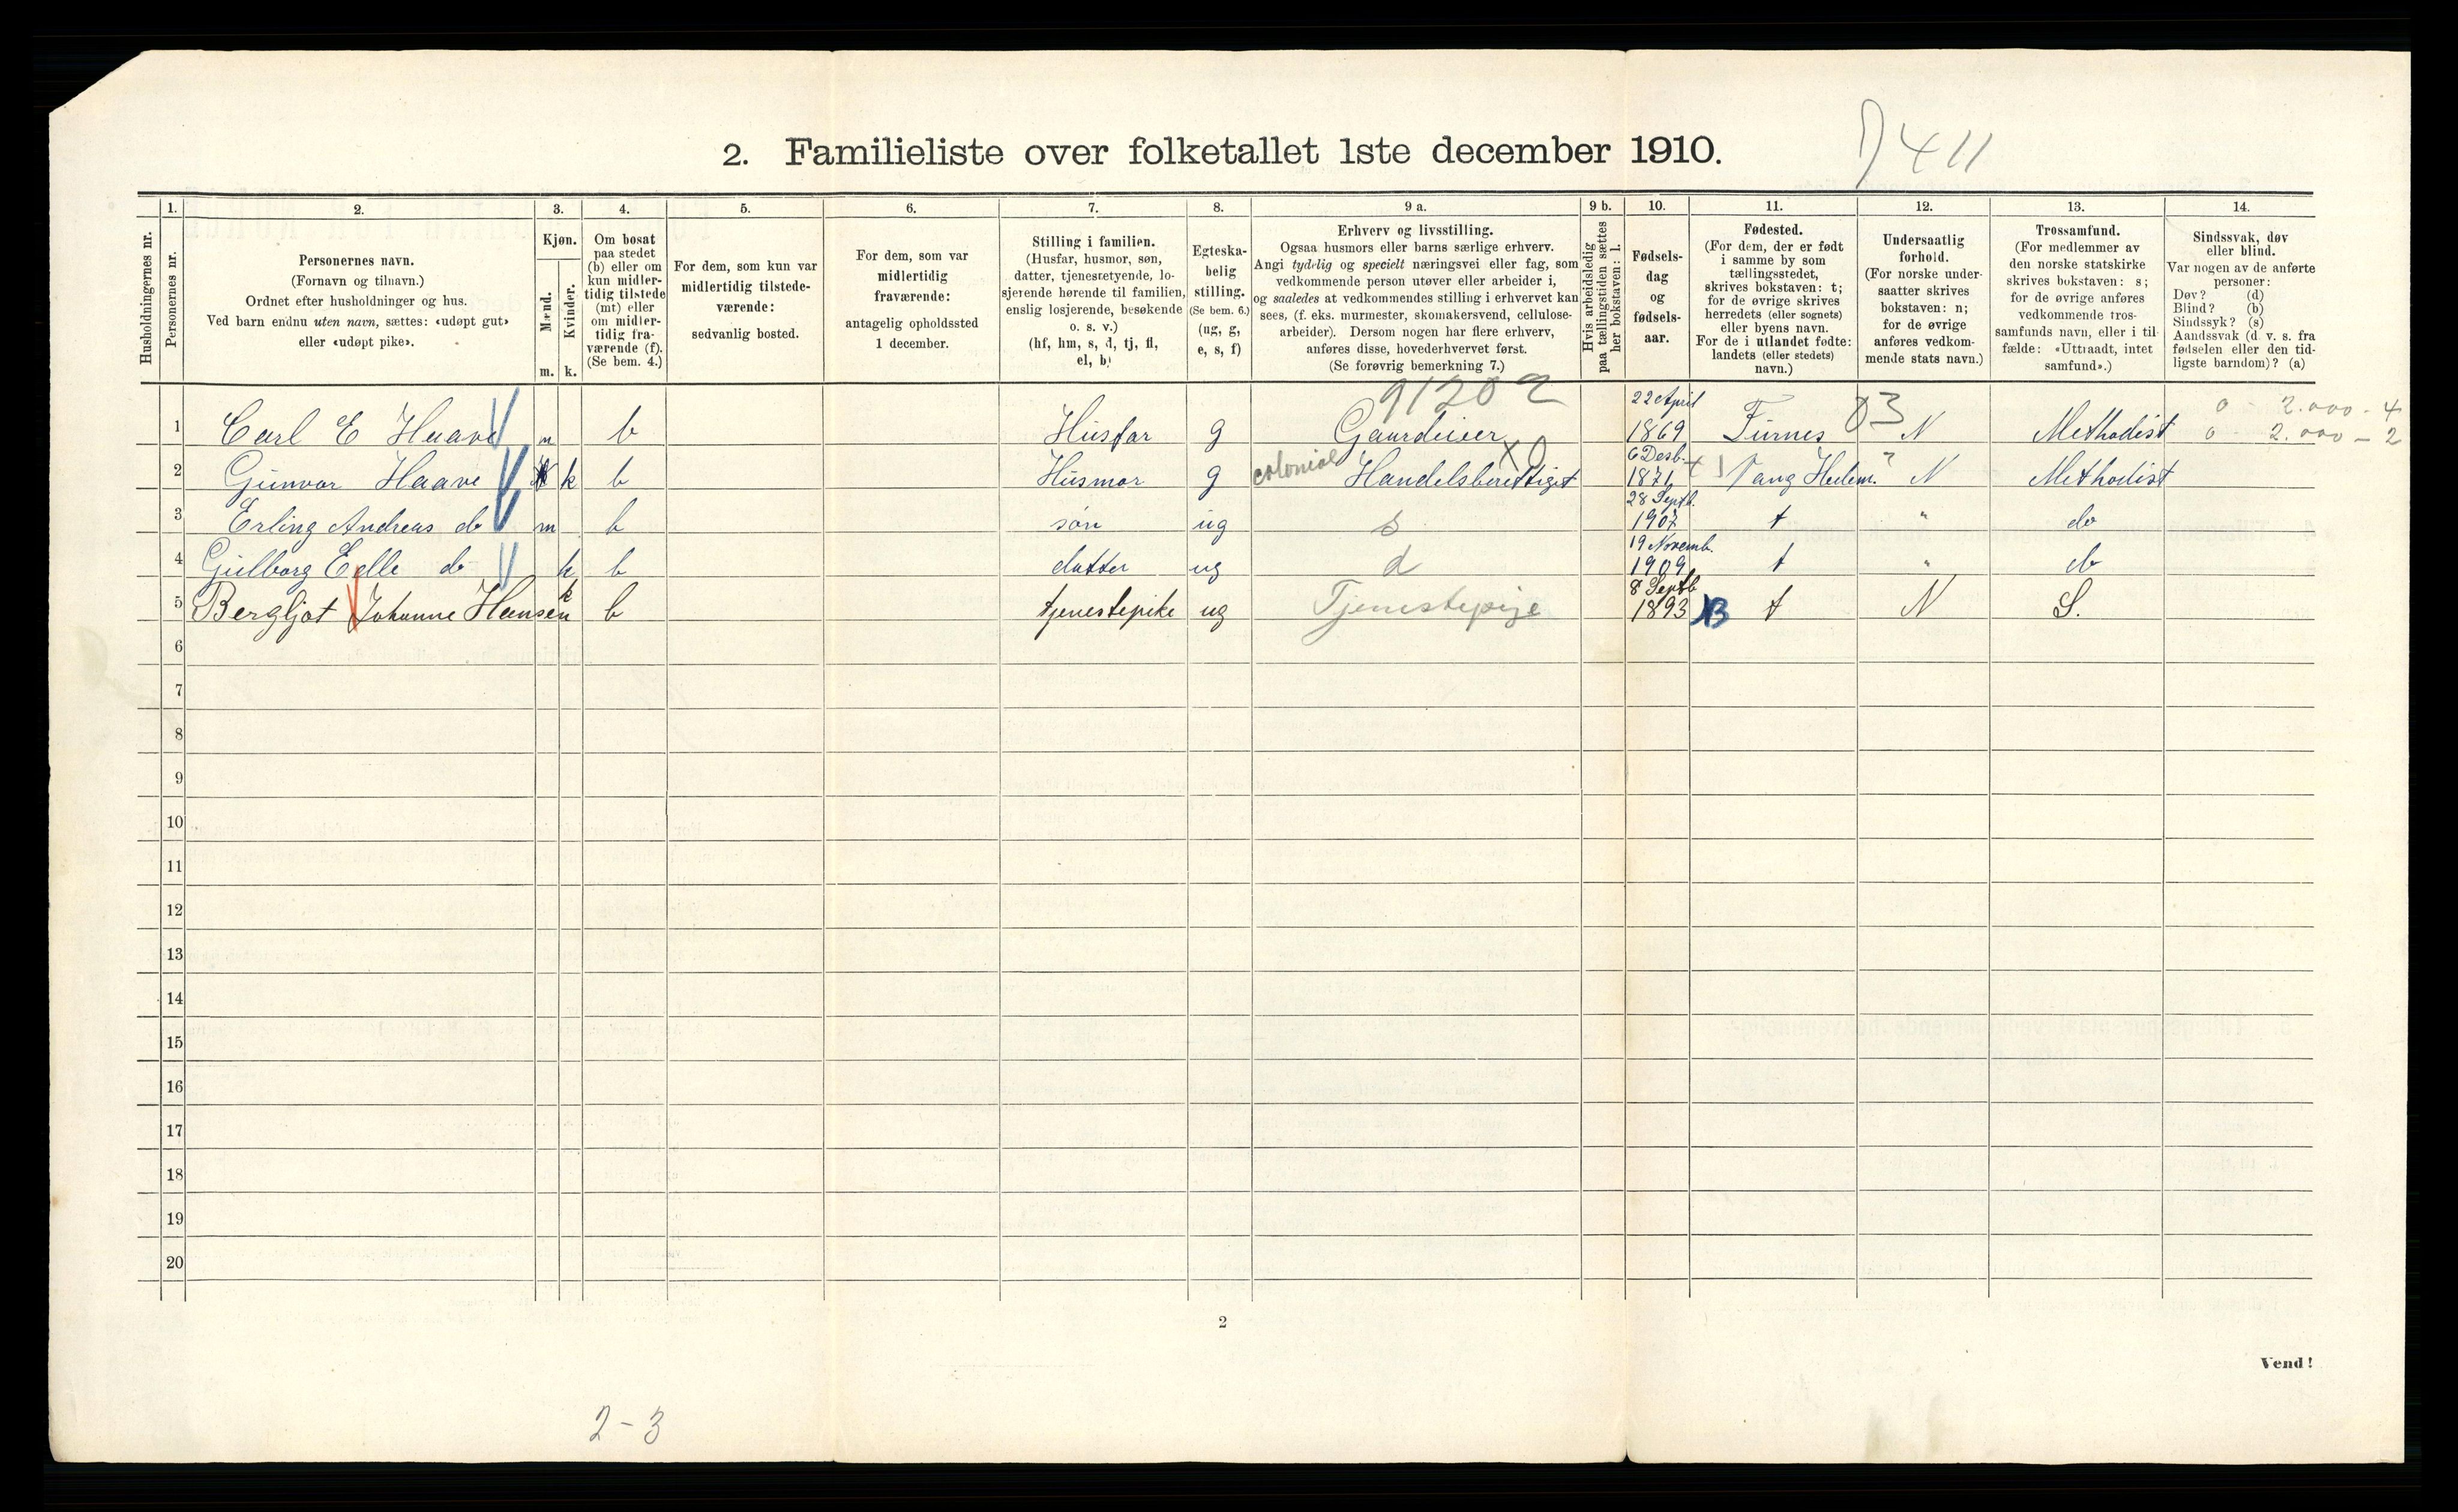 2. Familieliste over folketallet 1ste december 1910.
411
1. 2. 3. 4. 5. 6. 7. 8. 9 a. 9 b. 10. 11. 12. 13. 14.
Husholdningernes nr.
Personernes nr.
Personernes navn.
(Fornavn og tilnavn.)
Ordnet efter husholdninger og hus.
Ved barn endnu uten navn, sættes: «udøpt gut»
eller «udøpt pike».
Kjøn.
Mænd.
Kvinder.
m. k.
Om bosat
paa stedet
(b) eller om
kun midler-
tidig tilstede
(mt) eller
om midler-
tidig fra-
værende (f).
(Se bem. 4.)
For dem, som kun var
midlertidig tilstede-
værende:
sedvanlig bosted.
For dem, som var
midlertidig
fraværende:
antagelig opholdssted
1 december.
Stilling i familien.
(Husfar, husmor, søn,
datter, tjenestetyende, lo-
sjerende hørende til familien,
enslig losjerende, besøkende
o. s. v.)
(hf, hm, s, d, tj, fl,
el, b)
Egteska-
belig
stilling.
(Se bem. 6.)
(ug, g,
e, s, f)
Erhverv og livsstilling.
Ogsaa husmors eller barns særlige erhverv.
Angi tydelig og specielt næringsvei eller fag, som
vedkommende person utøver eller arbeider i,
og saaledes at vedkommendes stilling i erhvervet kan
sees, (f. eks. murmester, skomakersvend, cellulose-
arbeider). Dersom nogen har flere erhverv,
anføres disse, hovederhvervet først.
(Se forøvrig bemerkning 7.)
Hvis arbeidsledig
paa tællingstiden sættes
her bokstaven: l.
Fødsels-
dag
og
fødsels-
aar.
Fødested.
(For dem, der er født
i samme by som
tællingsstedet,
skrives bokstaven: t;
for de øvrige skrives
herredets (eller sognets)
eller byens navn.
For de i utlandet fødte:
landets (eller stedets)
navn.)
Undersaatlig
forhold.
(For norske under-
saatter skrives
bokstaven: n;
for de øvrige
anføres vedkom-
mende stats navn.)
Trossamfund.
(For medlemmer av
den norske statskirke
skrives bokstaven: s;
for de øvrige anføres
vedkommende tros-
samfunds navn, eller i til-
fælde: «Uttraadt, intet
samfund».)
Sindssvak, døv
eller blind.
Var nogen av de anførte
personer:
Døv? (d)
Blind? (b)
Sindssyk? (s)
Aandssvak (d. v. s. fra
fødselen eller den tid-
ligste barndom)? (a)
91202
1 Carl E Haave m b Husfar g Gaardeier 22 April 1869 Furnes 03 N Methodist 0 - 2.000 - 4
0 - 2.000 - 2
2 Gunvor Haave k b Husmor g colonial Handelsberettiget X0 6 Desb. 1871 Vang Hedem. N Methodist
3 Erling Andreas do m b søn ug s 28 Septb. 1907 t " do
4 Gulborg Eelle do k b datter ug d 19 Novemb. 1909 t " do
5 Bergljot Johanne Hansen k b tjenestepike ug Tjenestepige 8 Septb 1893 B t N S.
6
7
8
9
10
11
12
13
14
15
16
17
18
19
20
2
Vend!
2-3